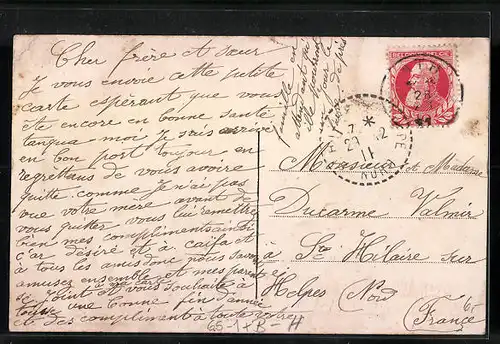 Cher frère et sœur
Je vous envoie cette petite
carte espérant que vous
ete encore en bonne santé
tanqua moi Je sais arrivé
en bon port toujour en
regrettans de vous avoire
quitte comme je n'ai pas
vue votre mère avant de
vous quitter vous lui remettre
bien mes compliments ainsi
c'ar désiré et a caifa et
à tous les amis dont nous
amuser ensemble et mes parents
se joint et vous souhaite à
toute une bonne fin d'année
et des compliments à toute votre
famille en
attendant
de
BELGIQUE-BELGIË
27
11
Monsieur et Madame
Ducarme Valmir
à Ste Hilaire sur
Helpes (Nord)
(France)
65-1+B-H